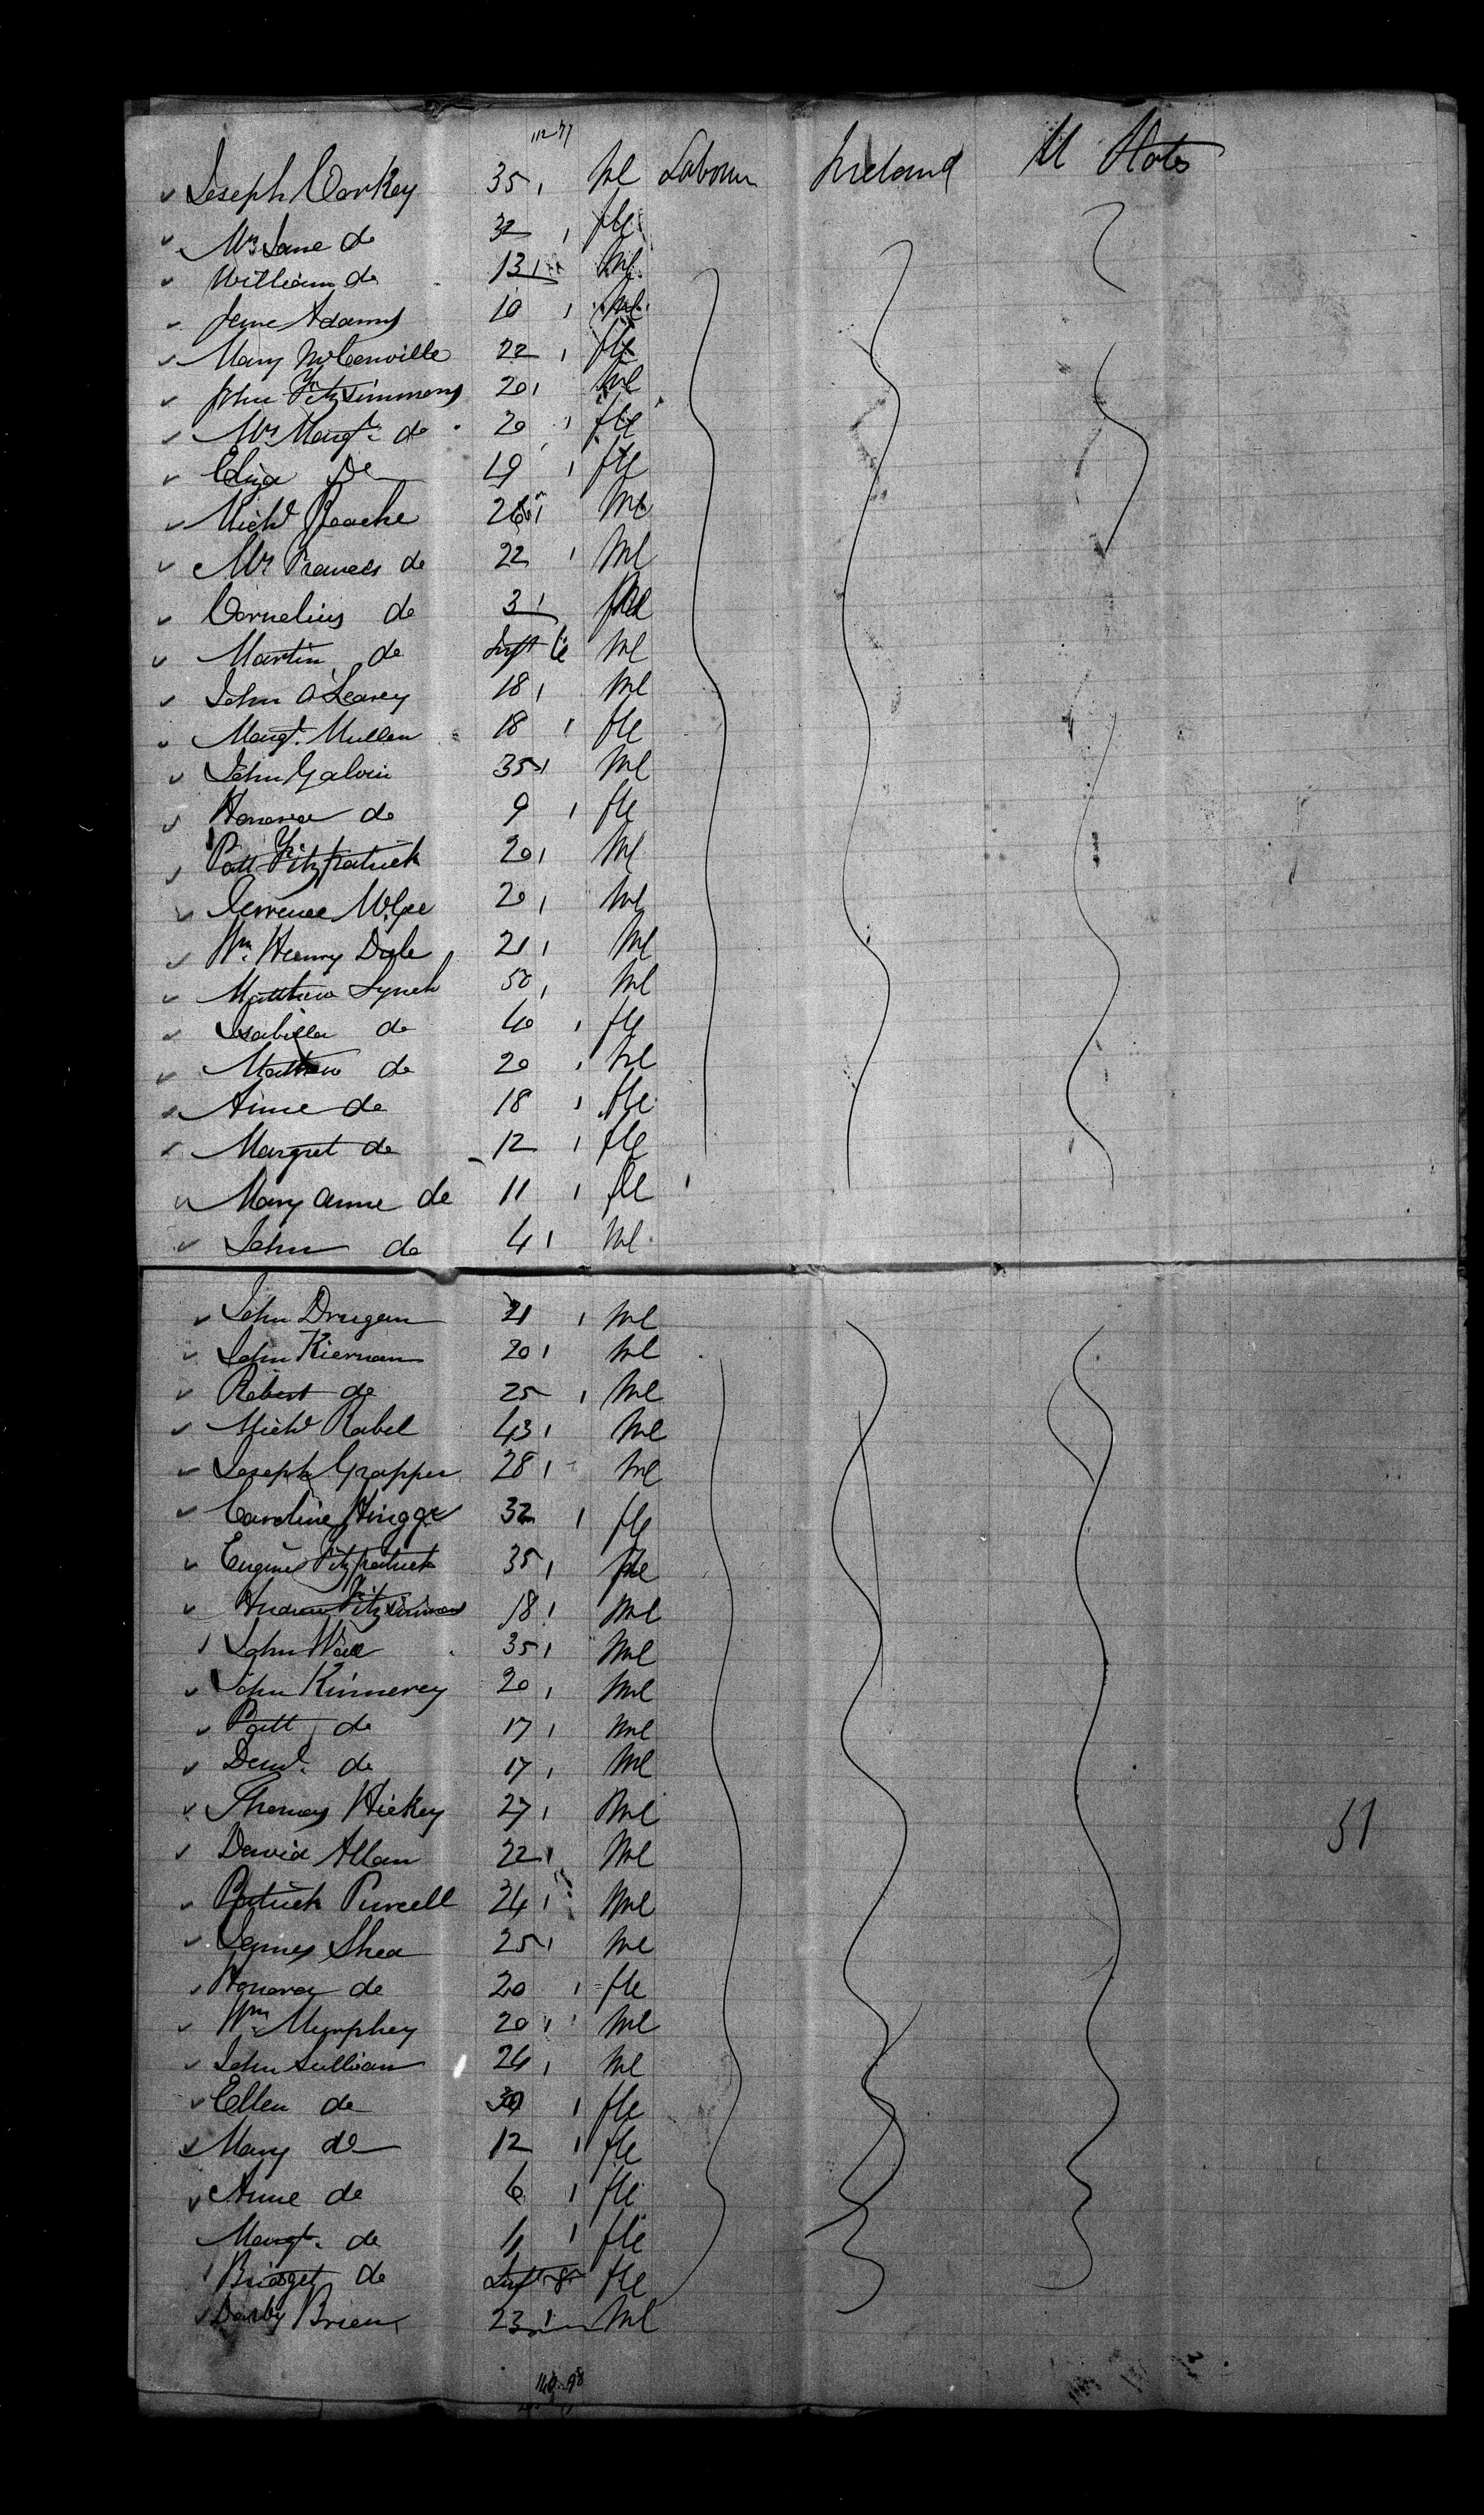 112 77
Joseph Corkey 35 Ml Labourer Ireland U States
Mrs Jane do 32 fle
William do 13 Ml
Jane Adams 10
Mary McConville 22 fle
John Fitzsimmons 20 Ml
Mrs Margt. do 20 fle
Eliza Do 19 fle
Michl Roache Ml
Mrs Frances do 22 Ml
Cornelius do 3
Martin do Inft Ml
John O'Leary 18 Ml
Margt. Mullen 18 fle
John Galvin 35 Ml
Honorea do 9 fle
Patt Fitzpatrick 20 Ml
Terrence McGee 20 Ml
Wm. Henry 21 Ml
Matthew Lynch 50 Ml
Isabella do 40 fle
Matthew do 20 Ml
Anne do 18 fle
Margret do 12 fle
Mary Anne do 11 fle
John do 4 Ml
John Drugan 21 Ml
John Kiernan 20 Ml
Robert do 25 Ml
Michl Rabel 43 Ml
Joseph Grapper 28 Ml
Caroline 32 fle
Eugene Fitzpatrick 35
Andrew Fitzsimmons 18 Ml
John Wall 35 Ml
John Kinnerey 20 Ml
Patt do 17 Ml
do 17 Ml
Thomas Hickey 27 Ml
David Allan 22 Ml
Patrick Purcell 24 Ml
James Shea 25 Ml
Honorey do 20 fle
Wm Murphey 20 Ml
John Sullivan 24 Ml
Ellen do fle
Mary do 12 fle
Anne do 6 fle
Margt. do fle
Bridget do Inft fle
Darby Brien 23 Ml
51